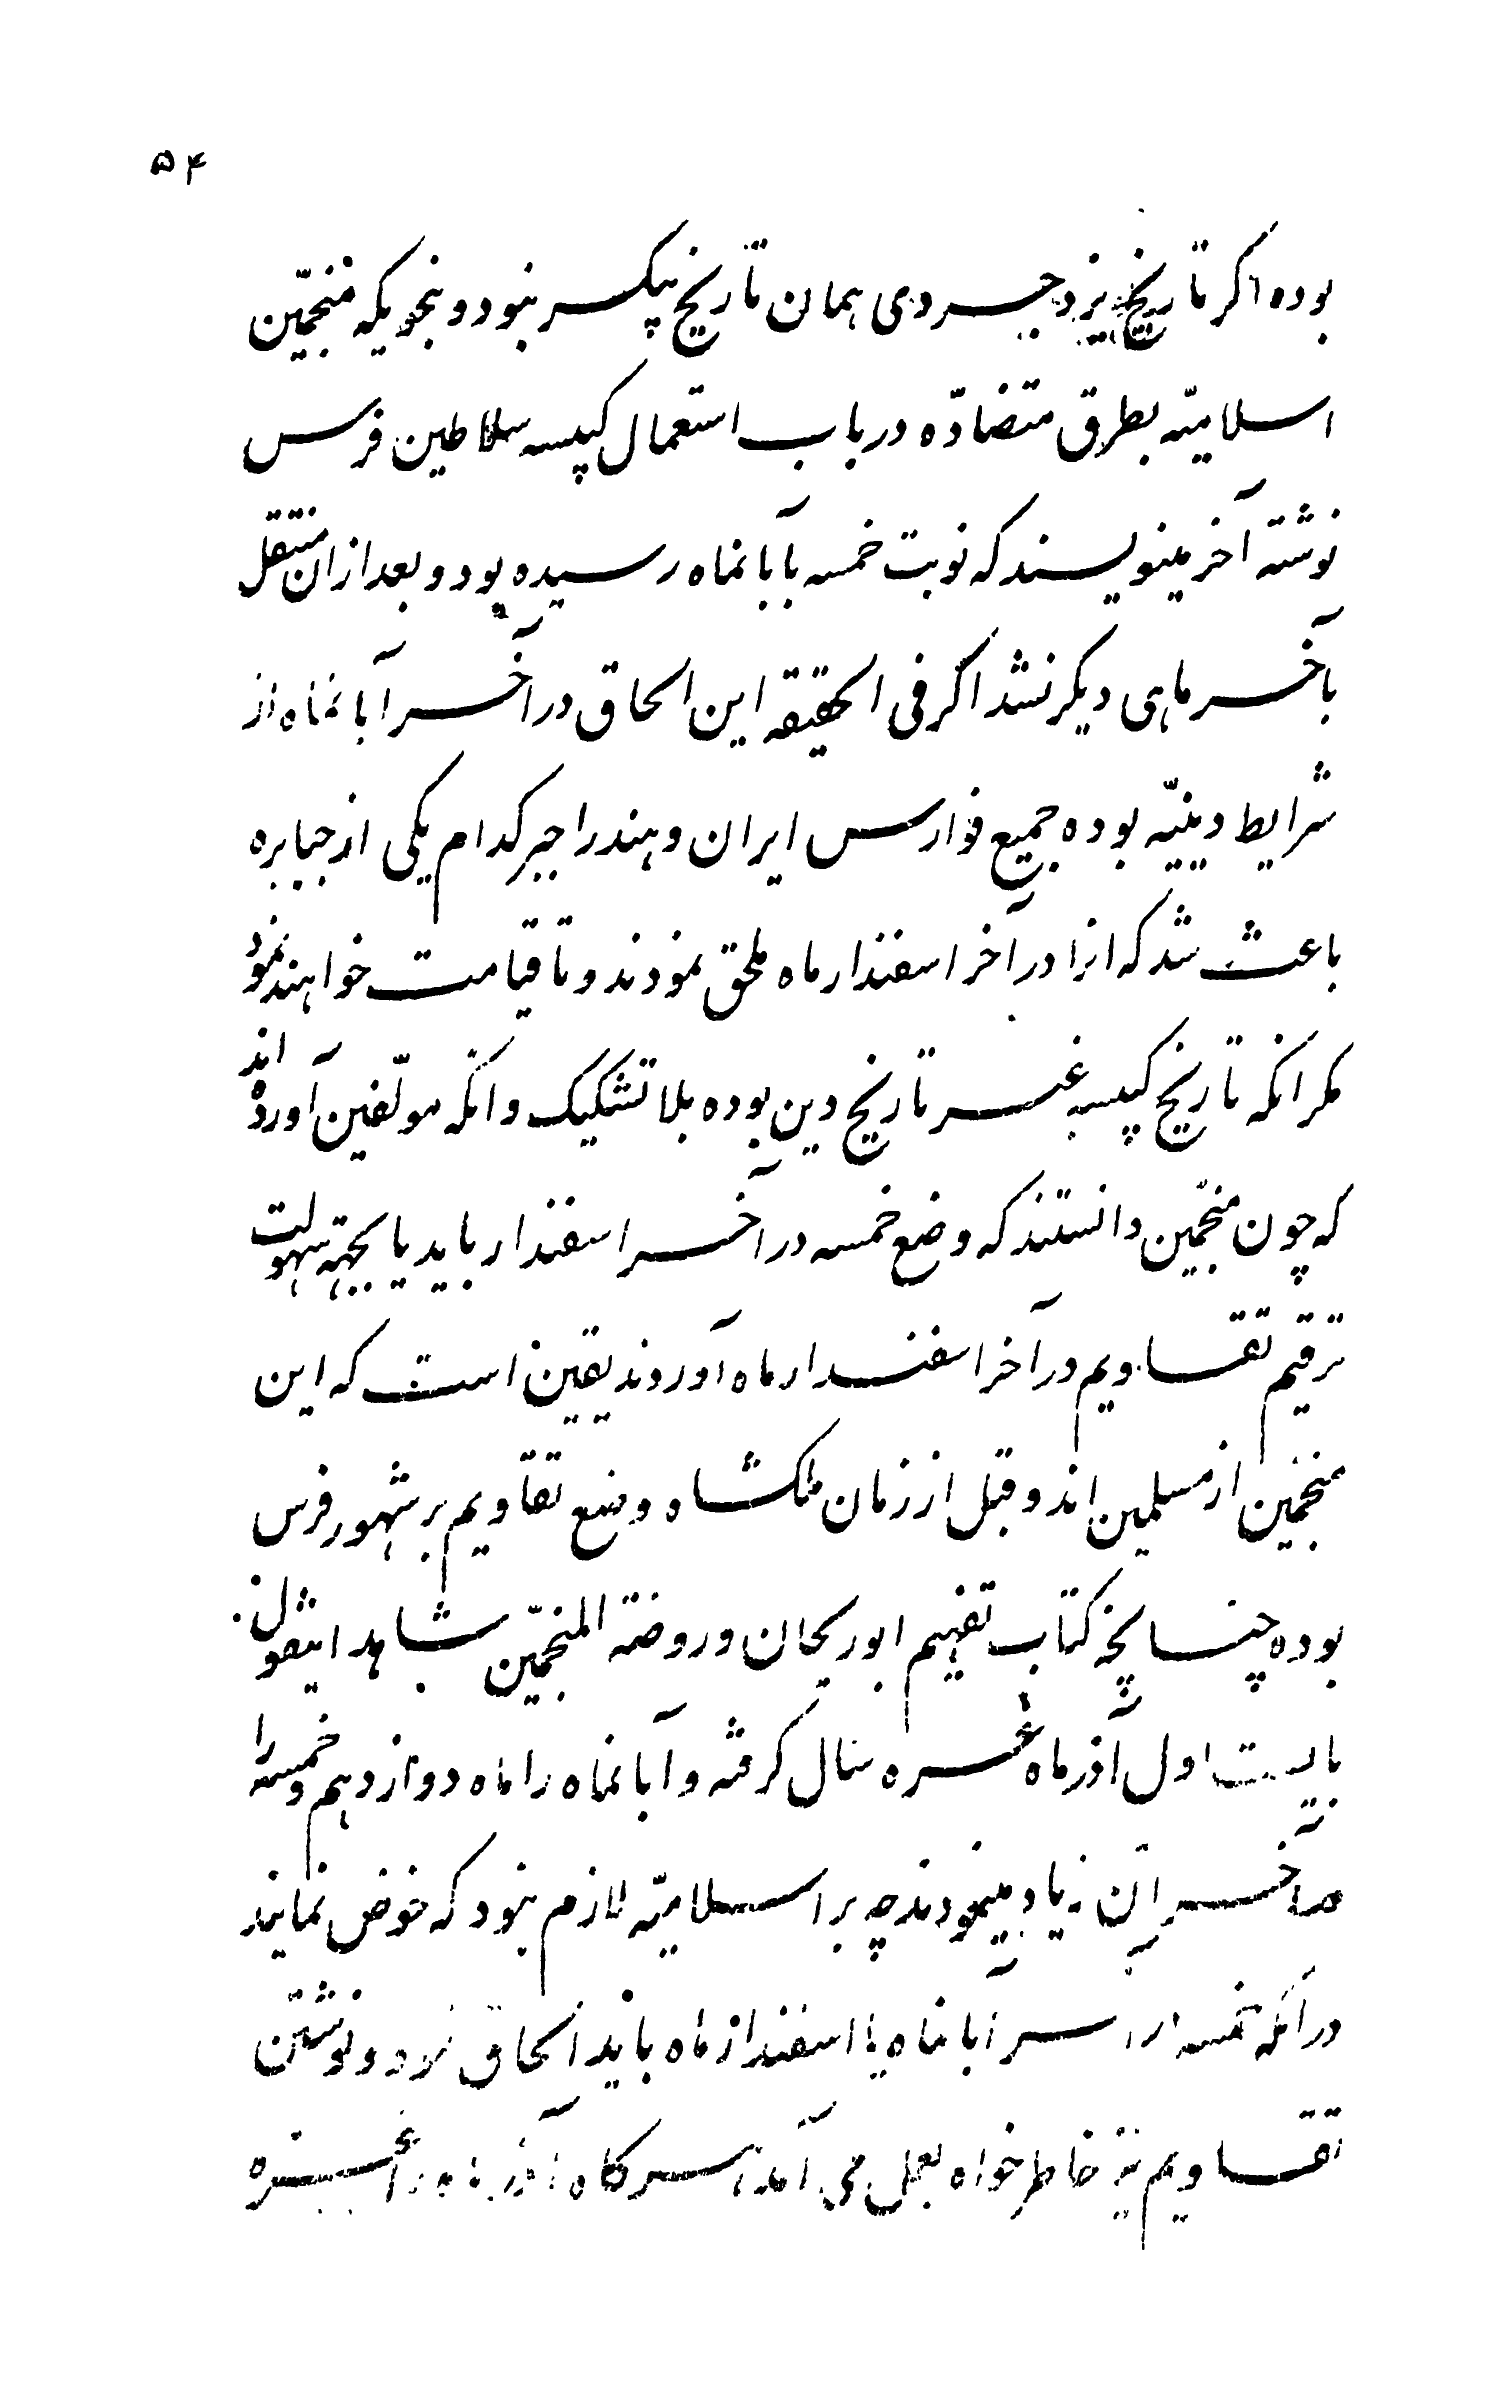 ۵۴
بوده اگر تاریخ یزدجردی همان تاریخ پیکسر نبود و بنحویکه منجّمین
اسلامیّه بطرق متضادّه در باب استعمال کبیسه سلاطین فرس
نوشته آخر مینویسند که نوبت خمسه بآبانماه رسیده بود و بعد ازان منتقل
بآخر ماهی دیگر نشد اگر فی الحقیقه این الحاق در آخر آبانماه از
شرایط دینیّه بوده جمیع فوارس ایران و هند را جبر کدام یکی از جبابره
باعث شد که انرا در آخر اسفندار ماه ملحق نمودند و تا قیامت خواهند نمود
مکر انکه تاریخ کبیسه غیر تاریخ دین بوده بلا تشکیک و انکه مولّفین آورده اند
که چون منجّمین دانستند که وضع خمسه در آخر اسفندار باید یا بجهته سهولت
ترقیم تقاویم در آخر اسفندار ماه آوردند یقین است که این
منجّمین از مسلمین اند و قبل از زمان ملکشاه وضع تقاویم بر شهور فرس
بوده چنانچه کتاب تفهیم ابوریحان و روضته المنجّمین شاهد اینقول
بایست اول آذر ماه غره سال گرفته و آبانماه را ماه دوازدهم و خمسه را
در آخر آن زیاد مینمودند چه بر اسلامیّه لازم نبود که خوض نمایند
در آنکه خمسه در آخر آبانماه یا اسفندار ماه باید الحاق نمود و نوشتن
تقاویم نیز خاطر خواه بعمل می آمد هرگاه آذر ماه را غره